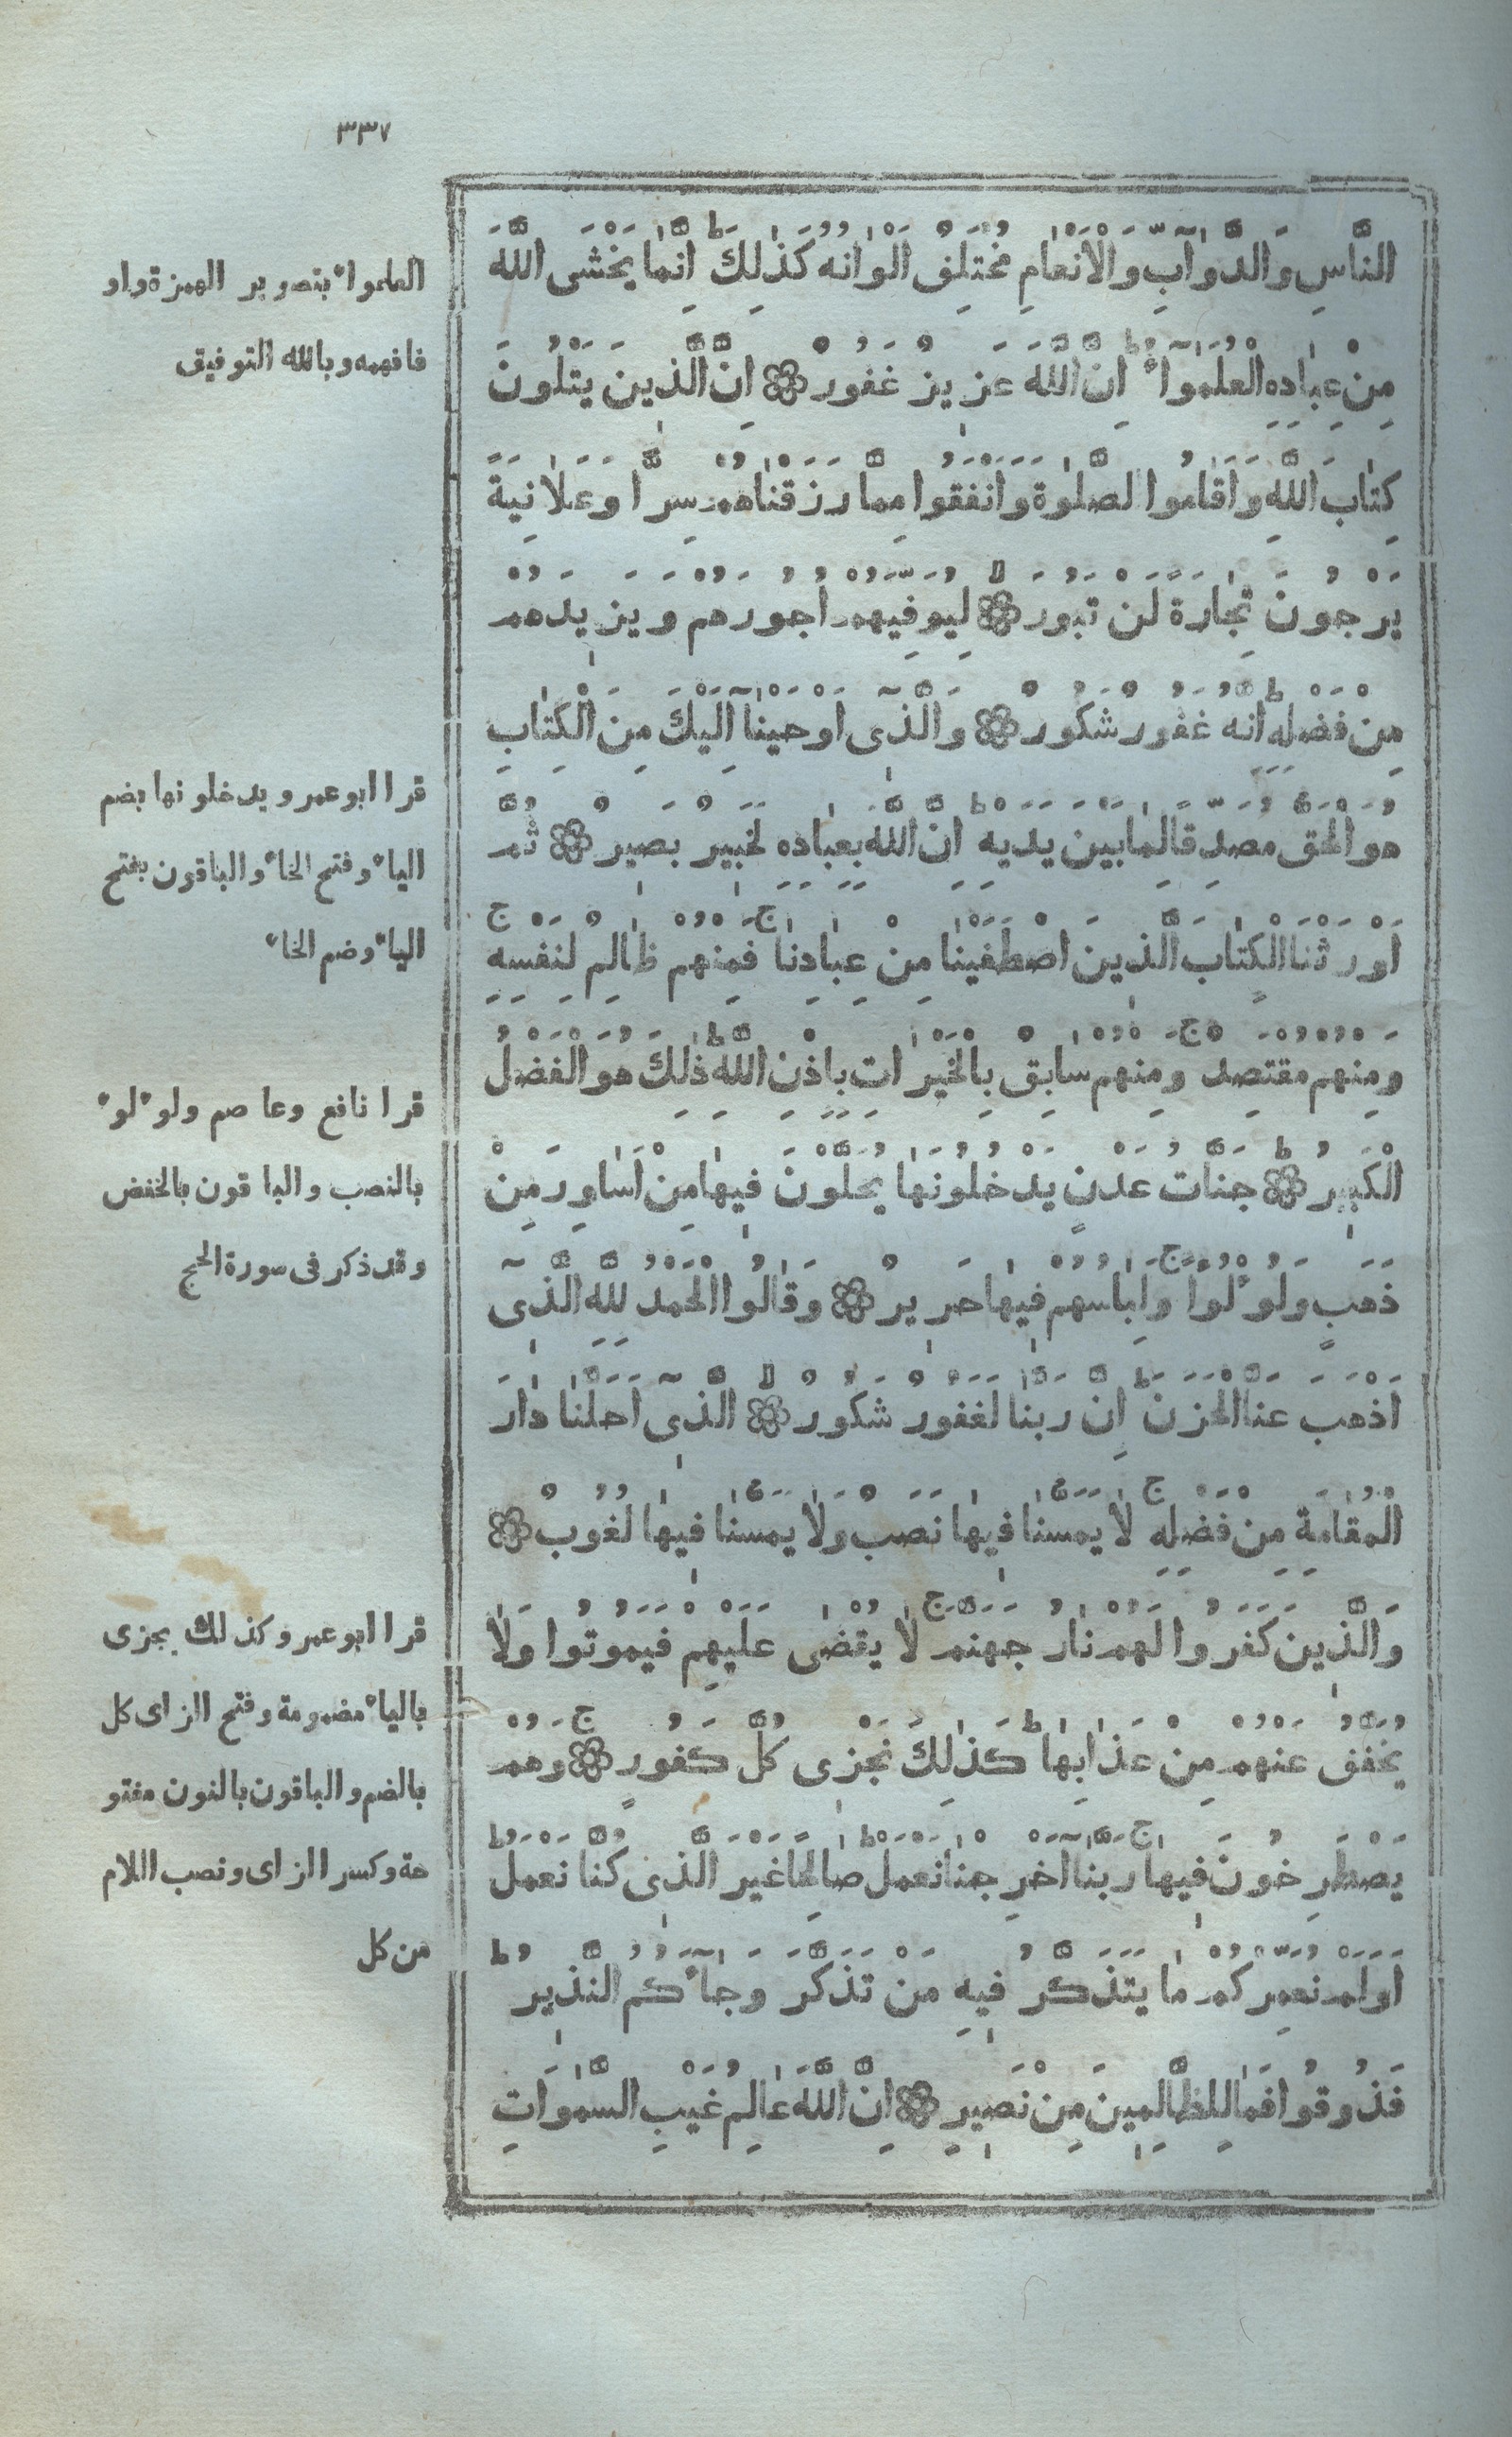 ٣٣٧
النَّاسِ وَالدَّوَآبِّ وَالْاَنْعَامِ مُخْتَلِفٌ اَلْوَانُهُ كَذٰلِكَ ط اِنَّمَا يَخْشَى اللَّهَ
مِنْ عِبَادِهِ الْعُلَمٰٓؤُا ط اِنَّ اللَّهَ عَزِيزٌ غَفُورٌ ۞ اِنَّ الَّذِينَ يَتْلُونَ
كِتَابَ اللَّهِ وَاَقَامُوا الصَّلٰوةَ وَاَنْفَقُوا مِمَّا رَزَقْنَاهُمْ سِرًّا وَعَلَانِيَةً
يَرْجُونَ تِجَارَةً لَنْ تَبُورَ لا ۞ لِيُوَفِّيَهُمْ اُجُورَهُمْ وَيَزِيدَهُمْ
مِنْ فَضْلِهِ ط اِنَّهُ غَفُورٌ شَكُورٌ ۞ وَالَّذِٓى اَوْحَيْنَآ اِلَيْكَ مِنَ الْكِتَابِ
هُوَ الْحَقُّ مُصَدِّقًا لِمَا بَيْنَ يَدَيْهِ ط اِنَّ اللَّهَ بِعِبَادِهِ لَخَبِيرٌ بَصِيرٌ ۞ ثُمَّ
اَوْرَثْنَا الْكِتَابَ الَّذِينَ اصْطَفَيْنَا مِنْ عِبَادِنَا ج فَمِنْهُمْ ظَالِمٌ لِنَفْسِهِ ج
وَمِنْهُمْ مُقْتَصِدٌ ج وَمِنْهُمْ سَابِقٌ بِالْخَيْرَاتِ بِاِذْنِ اللَّهِ ط ذٰلِكَ هُوَ الْفَضْلُ
الْكَبِيرُ ط ۞ جَنَّاتُ عَدْنٍ يُدْخَلُونَهَا يُحَلَّوْنَ فِيهَا مِنْ اَسَاوِرَ مِنْ
ذَهَبٍ وَلُؤْلُؤًا ج وَلِبَاسُهُمْ فِيهَا حَرِيرٌ ۞ وَقَالُوا الْحَمْدُ لِلَّهِ الَّذِٓى
اَذْهَبَ عَنَّا الْحَزَنَ ط اِنَّ رَبَّنَا لَغَفُورٌ شَكُورٌ لا ۞ الَّذِٓى اَحَلَّنَا دَارَ
الْمُقَامَةِ مِنْ فَضْلِهِ ج لَا يَمَسُّنَا فِيهَا نَصَبٌ وَلَا يَمَسُّنَا فِيهَا لُغُوبٌ ۞
وَالَّذِينَ كَفَرُوا لَهُمْ نَارُ جَهَنَّمَ ج لَا يُقْضٰى عَلَيْهِمْ فَيَمُوتُوا وَلَا
يُخَفَّفُ عَنْهُمْ مِنْ عَذَابِهَا ط كَذٰلِكَ نَجْزِى كُلَّ كَفُورٍ ج ۞ وَهُمْ
يَصْطَرِخُونَ فِيهَا ج رَبَّنَآ اَخْرِجْنَا نَعْمَلْ صَالِحًا غَيْرَ الَّذِى كُنَّا نَعْمَلُ ط
اَوَلَمْ نُعَمِّرْكُمْ مَا يَتَذَكَّرُ فِيهِ مَنْ تَذَكَّرَ وَجَآءَكُمُ النَّذِيرُ ط
فَذُوقُوا فَمَا لِلظَّالِمِينَ مِنْ نَصِيرٍ ۞ اِنَّ اللَّهَ عَالِمُ غَيْبِ السَّمٰوَاتِ
العلموا ء بتصوير الهمزة واو
فافهمه وبالله التوفيق
قرا ابو عمرو يدخلونها بضم
الياء وفتح الخاء والباقون بفتح
الياء وضم الخاء
قرا نافع وعاصم ولوءلوء
بالنصب والباقون بالخفض
وقد ذكر فى سورة الحج
قرا ابو عمرو كذلك يجزى
بالياء مضمومة وفتح الزاى كل
بالضم والباقون بالنون مفتو
حة وكسر الزاى ونصب اللام
من كل